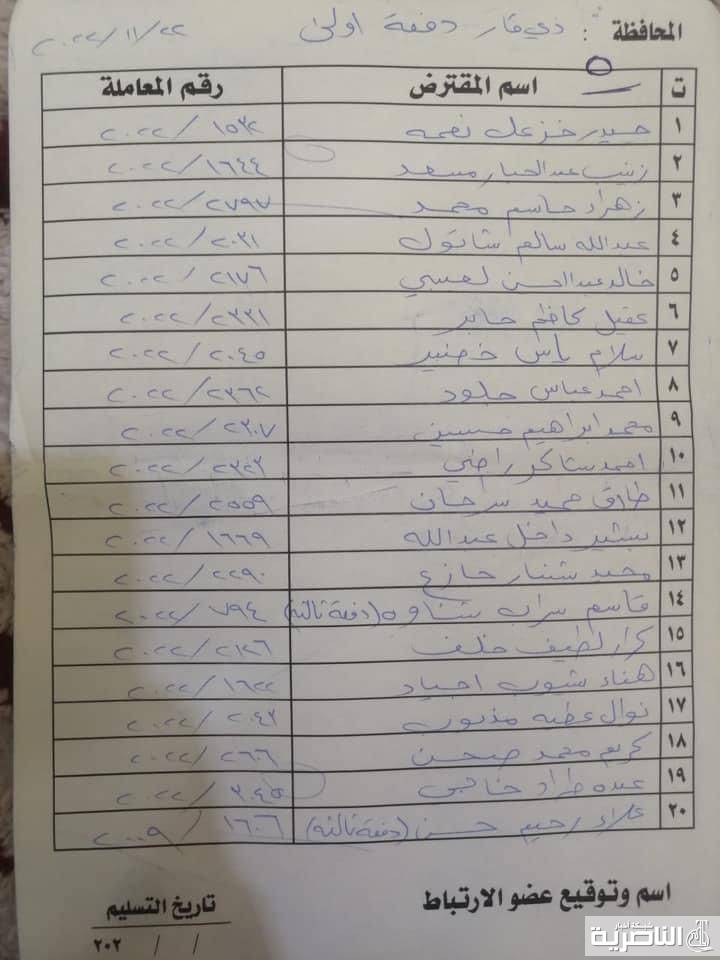 المحافظة : ذي قار دفعة اولى ٢٠٢٢/١١/٢٢
ت اسم المقترض رقم المعاملة
١ حيدر خزعل نعمه ١٥٣٢/٢٠٢٢
٢ زينب عبدالجبار مسعد ١٦٤٤/٢٠٢٢
٣ زهراء جاسم محمد ٢٧٩٧/٢٠٢٢
٤ عبدالله سالم شاتول ٢٠٣١/٢٠٢٢
٥ خالد عبدالحسن لعيبي ٢١٧٦/٢٠٢٢
٦ عقيل كاظم جابر ٢٣٣١/٢٠٢٢
٧ سلام ياس خضير ٢٠٤٥/٢٠٢٢
٨ احمد عباس جلود ٢٣٦٢/٢٠٢٢
٩ محمد ابراهيم حسين ٢٣٠٧/٢٠٢٢
١٠ احمد شاكر راضي ٢٣٢٣/٢٠٢٢
١١ طارق حميد سرحان ٢٥٥٩/٢٠٢٢
١٢ بشير داخل عبدالله ١٦٦٩/٢٠٢٢
١٣ محمد شنار جازع ٢٢٩٠/٢٠٢٢
١٤ قاسم سراب شناوه (دفعة ثالثة) ٧٩٤/٢٠٢٢
١٥ كرار لطيف خلف ٢١٢٦/٢٠٢٢
١٦ هناء شبوب اجياد ١٦٢٢/٢٠٢٢
١٧ نوال عطيه مذبوب ٢٠٤٢/٢٠٢٢
١٨ كريم محمد صحن ٢٦٠٦/٢٠٢٢
١٩ عبده طراد ٣٠٤٥/٢٠٢٢
٢٠ علاء رحيم حسن (دفعة ثالثة) ١٦٠٦/٢٠٠٩
اسم وتوقيع عضو الارتباط تاريخ التسليم
/ / ٢٠٢
شبكة اخبار الناصرية